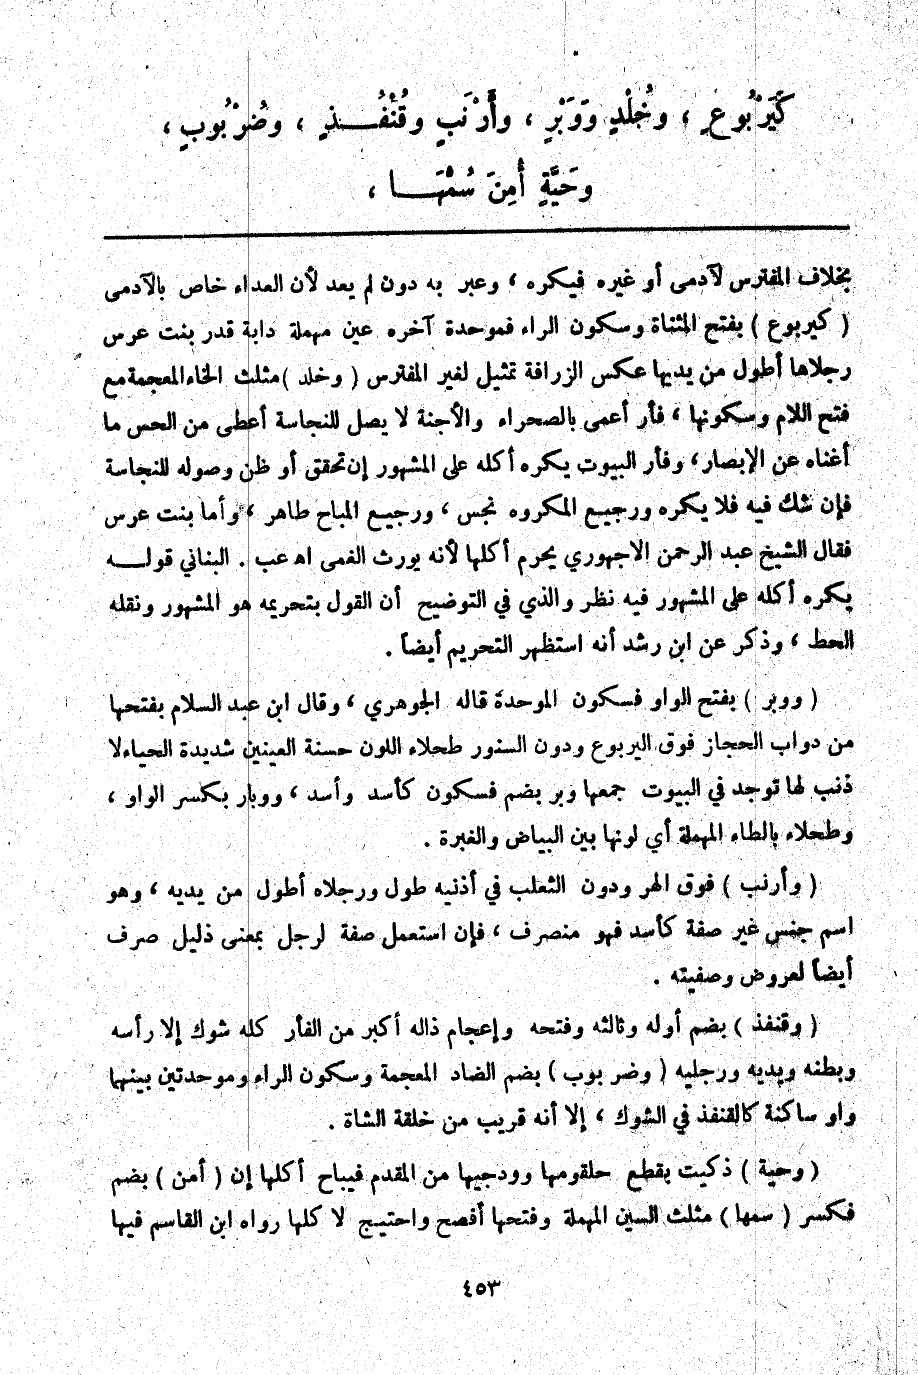 كَيَرْبُوعٍ ، وخُلْدٍ وَوَبْرٍ ، وأَرْنَبٍ وقُنْفُذٍ ، وضُرْبُوبٍ ،
وحَيَّةٍ أُمِنَ سُمُّهَا ،
بخلاف المفترس لآدمى أو غيره فيكره ، وعبر به دون لم يعد لأن العداء خاص بالآدمى
( كيربوع ) بفتح المثناة وسكون الراء فموحدة آخره عين مهملة دابة قدر بنت عرس
رجلاها أطول من يديها عكس الزرافة تمثيل لغير المفترس ( وخلد ) مثلث الخاء المعجمة مع
فتح اللام وسكونها ، فأر أعمى بالصحراء والأجنة لا يصل للنجاسة أعطى من الحس ما
أغناه عن الإبصار ، وفأر البيوت يكره أكله على المشهور إن تحقق أو ظن وصوله للنجاسة
فإن شك فيه فلا يكره ورجيع المكروه نجس ، ورجيع المباح طاهر ، وأما بنت عرس
فقال الشيخ عبد الرحمن الاجهوري يحرم أكلها لأنه يورث الغمى اه عب . البناني قوله
يكره أكله على المشهور فيه نظر والذي في التوضيح أن القول بتحريمه هو المشهور ونقله
الحط ، وذكر عن ابن رشد أنه استظهر التحريم أيضاً .
( ووبر ) بفتح الواو فسكون الموحدة قاله الجوهري ، وقال ابن عبد السلام بفتحها
من دواب الحجاز فوق اليربوع ودون السنور طحلاء اللون حسنة العينين شديدة الحياء لا
ذنب لها توجد في البيوت جمعها وبر بضم فسكون كأسد وأسد ، ووبار بكسر الواو ،
وطحلاء بالطاء المهملة أي لونها بين البياض والغبرة .
( وأرنب ) فوق الهر ودون الثعلب في أذنيه طول ورجلاه أطول من يديه ، وهو
اسم جنس غير صفة كأسد فهو منصرف ، فإن استعمل صفة لرجل بمعنى ذليل صرف
أيضاً لعروض وصفيته .
( وقنفذ ) بضم أوله وثالثه وفتحه وإعجام ذاله أكبر من الفأر كله شوك إلا رأسه
وبطنه ويديه ورجليه ( وضربوب ) بضم الضاد المعجمة وسكون الراء وموحدتين بينهما
واو ساكنة كالقنفذ في الشوك ، إلا أنه قريب من خلقة الشاة .
( وحية ) ذكيت بقطع حلقومها وودجيها من المقدم فيباح أكلها إن ( أمن ) بضم
فكسر ( سمها ) مثلث السين المهملة وفتحها أفصح واحتيج لا كلها رواه ابن القاسم فيها
٤٥٣